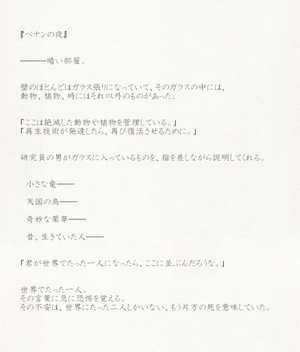 『ペナンの夜』
―――暗い部屋。
壁のほとんどはガラス張りになっていて、そのガラスの中には、
動物、植物、時にはそれ以外のものがあった。
「ここは絶滅した動物や植物を管理している。」
「再生技術が発達したら、再び復活させるために。」
研究員の男がガラスに入っているものを、指を差しながら説明してくれる。
小さな竜――
天国の鳥――
奇妙な薬草――
昔、生きていた人――
「君が世界でたった一人になったら、ここに並ぶんだろうな。」
世界でたった一人。
その言葉に急に恐怖を覚える。
その不安は、世界にたった二人しかいない、もう片方の死を意味していた。